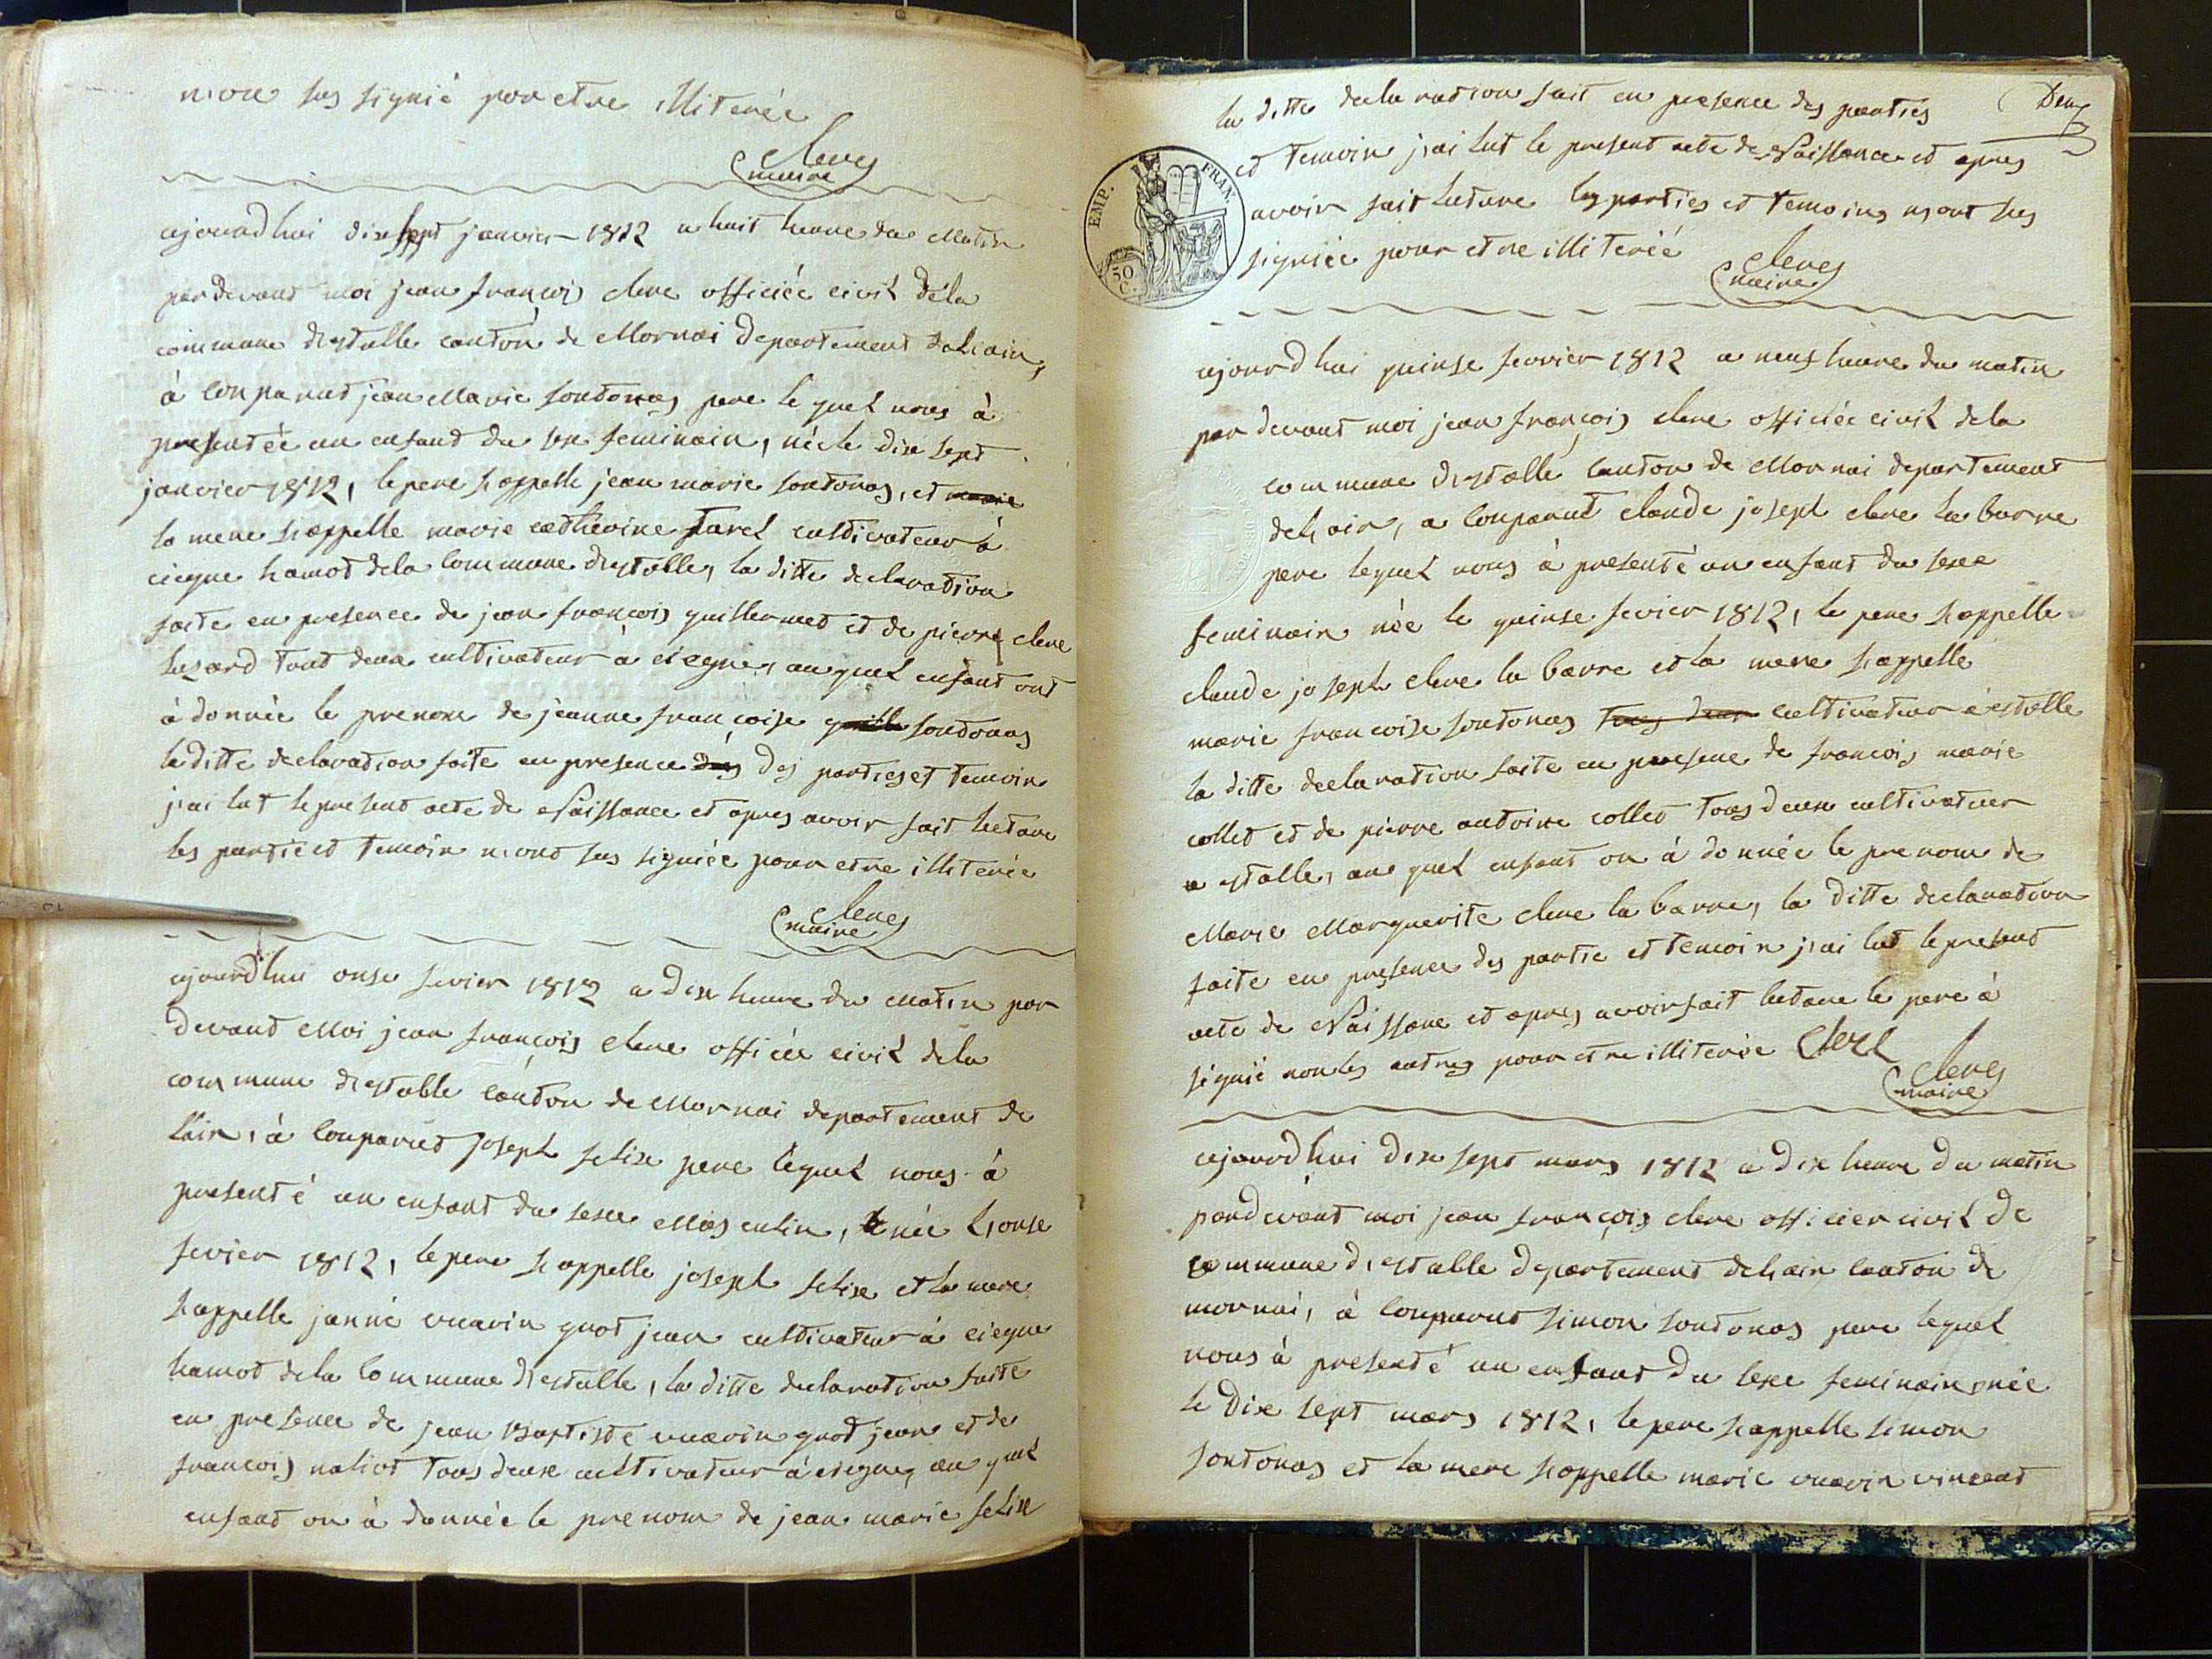 n'on sus signié por etre illiterée
clerc
maire
ajourdhui dix sept janvier 1812 a huit heure du Matin
par devant moi jean françois clerc officiée civil dela
commune d'estalle canton de Mornai departement deL'ain,
à comparut jean Marie sontonas pere le quel nous à
presentée un enfant du sexe feminain, née le dix sept
janvier 1812, le pere s'appelle jean marie sontonas, et marie
la mere s'appelle marie catherine Jaret cultivateur à
ciegne hamot dela Commune d'estalle, la ditte declaration
faite en presence de jean françois guillermet et de pierre clerc
lusard tout deux cultivateur à ciegne, au quel enfant ont
à donnée le prenom de jeanne françoise sontonas
la ditte declaration faite en presence des des parties et temoin
j'ai lut le present acte de Naissance et apres avoir fait lecture
les partie et temoin n'ont sus signiée pour etre illiterée
clerc
maire
ajourd'hui onse fevier 1812 a dix heure du Matin par
devant Moi jean françois clerc officiée civil dela
commune d'estalle canton de Mornai departement de
l'ain, à comparut Joseph felix pere lequel nous à
presenté un enfant du sexe Mascculin, née l'onse
fevier 1812, le pere s'appelle joseph felix et la mere
s'appelle janne vuarin quot jean cultivateur à ciegne
hamot dela Commune d'estalle, la ditte declaration faite
en presence de jean Baptiste vuarin quot jean et de
françois naliot tous deux cultivateur à ciegne, au quel
enfant on à donnée le prenom de jean marie felix
Deux
la ditte declaration fait en presence des parties
et temoin j'ai lut le present acte de Naissance et apres
avoir fait lecture les parties et temoins n'ont sus
signiée pour etre illiterée
clerc
maire
EMP. FRAN.
50 C.
ajourd'hui quinse fevrier 1812 a neuf heure du matin
par devant moi jean françois clerc officiée civil dela
commune d'estalle canton de Mornai departement
del'ain, a comparut claude joseph clerc la barre
pere lequel nous à presenté un enfant du sexe
feminain née le quinse fevier 1812, le pere s'appelle
claude joseph clerc la barre et la mere s'appelle
marie françoise sontonas tous deux cultivateur à estalle
la ditte declaration faite en presence de françois marie
collet et de pierre antoine collet tous deux cultivateur
a estalle, au quel enfant on à donnée le prenom de
Marie Marguerite clerc la barre, la ditte declaration
faite en presence des partie et temoin j'ai lut le present
acte de Naissance et apres avoir fait lecture le pere à
signié non les autres pour etre illiterée Clerc
clerc
maire
ajourd'hui dix sept mars 1812 a dix heure du matin
pardevant moi jean françois clerc officier civil de
commune d'estalle departement del'ain canton de
mornai, à comparut simon sontonas pere lequel
nous à presenté un enfant du sexe feminain, née
le dix sept mars 1812, le pere s'appelle simon
sontonas et la mere s'appelle marie vuarin vincent